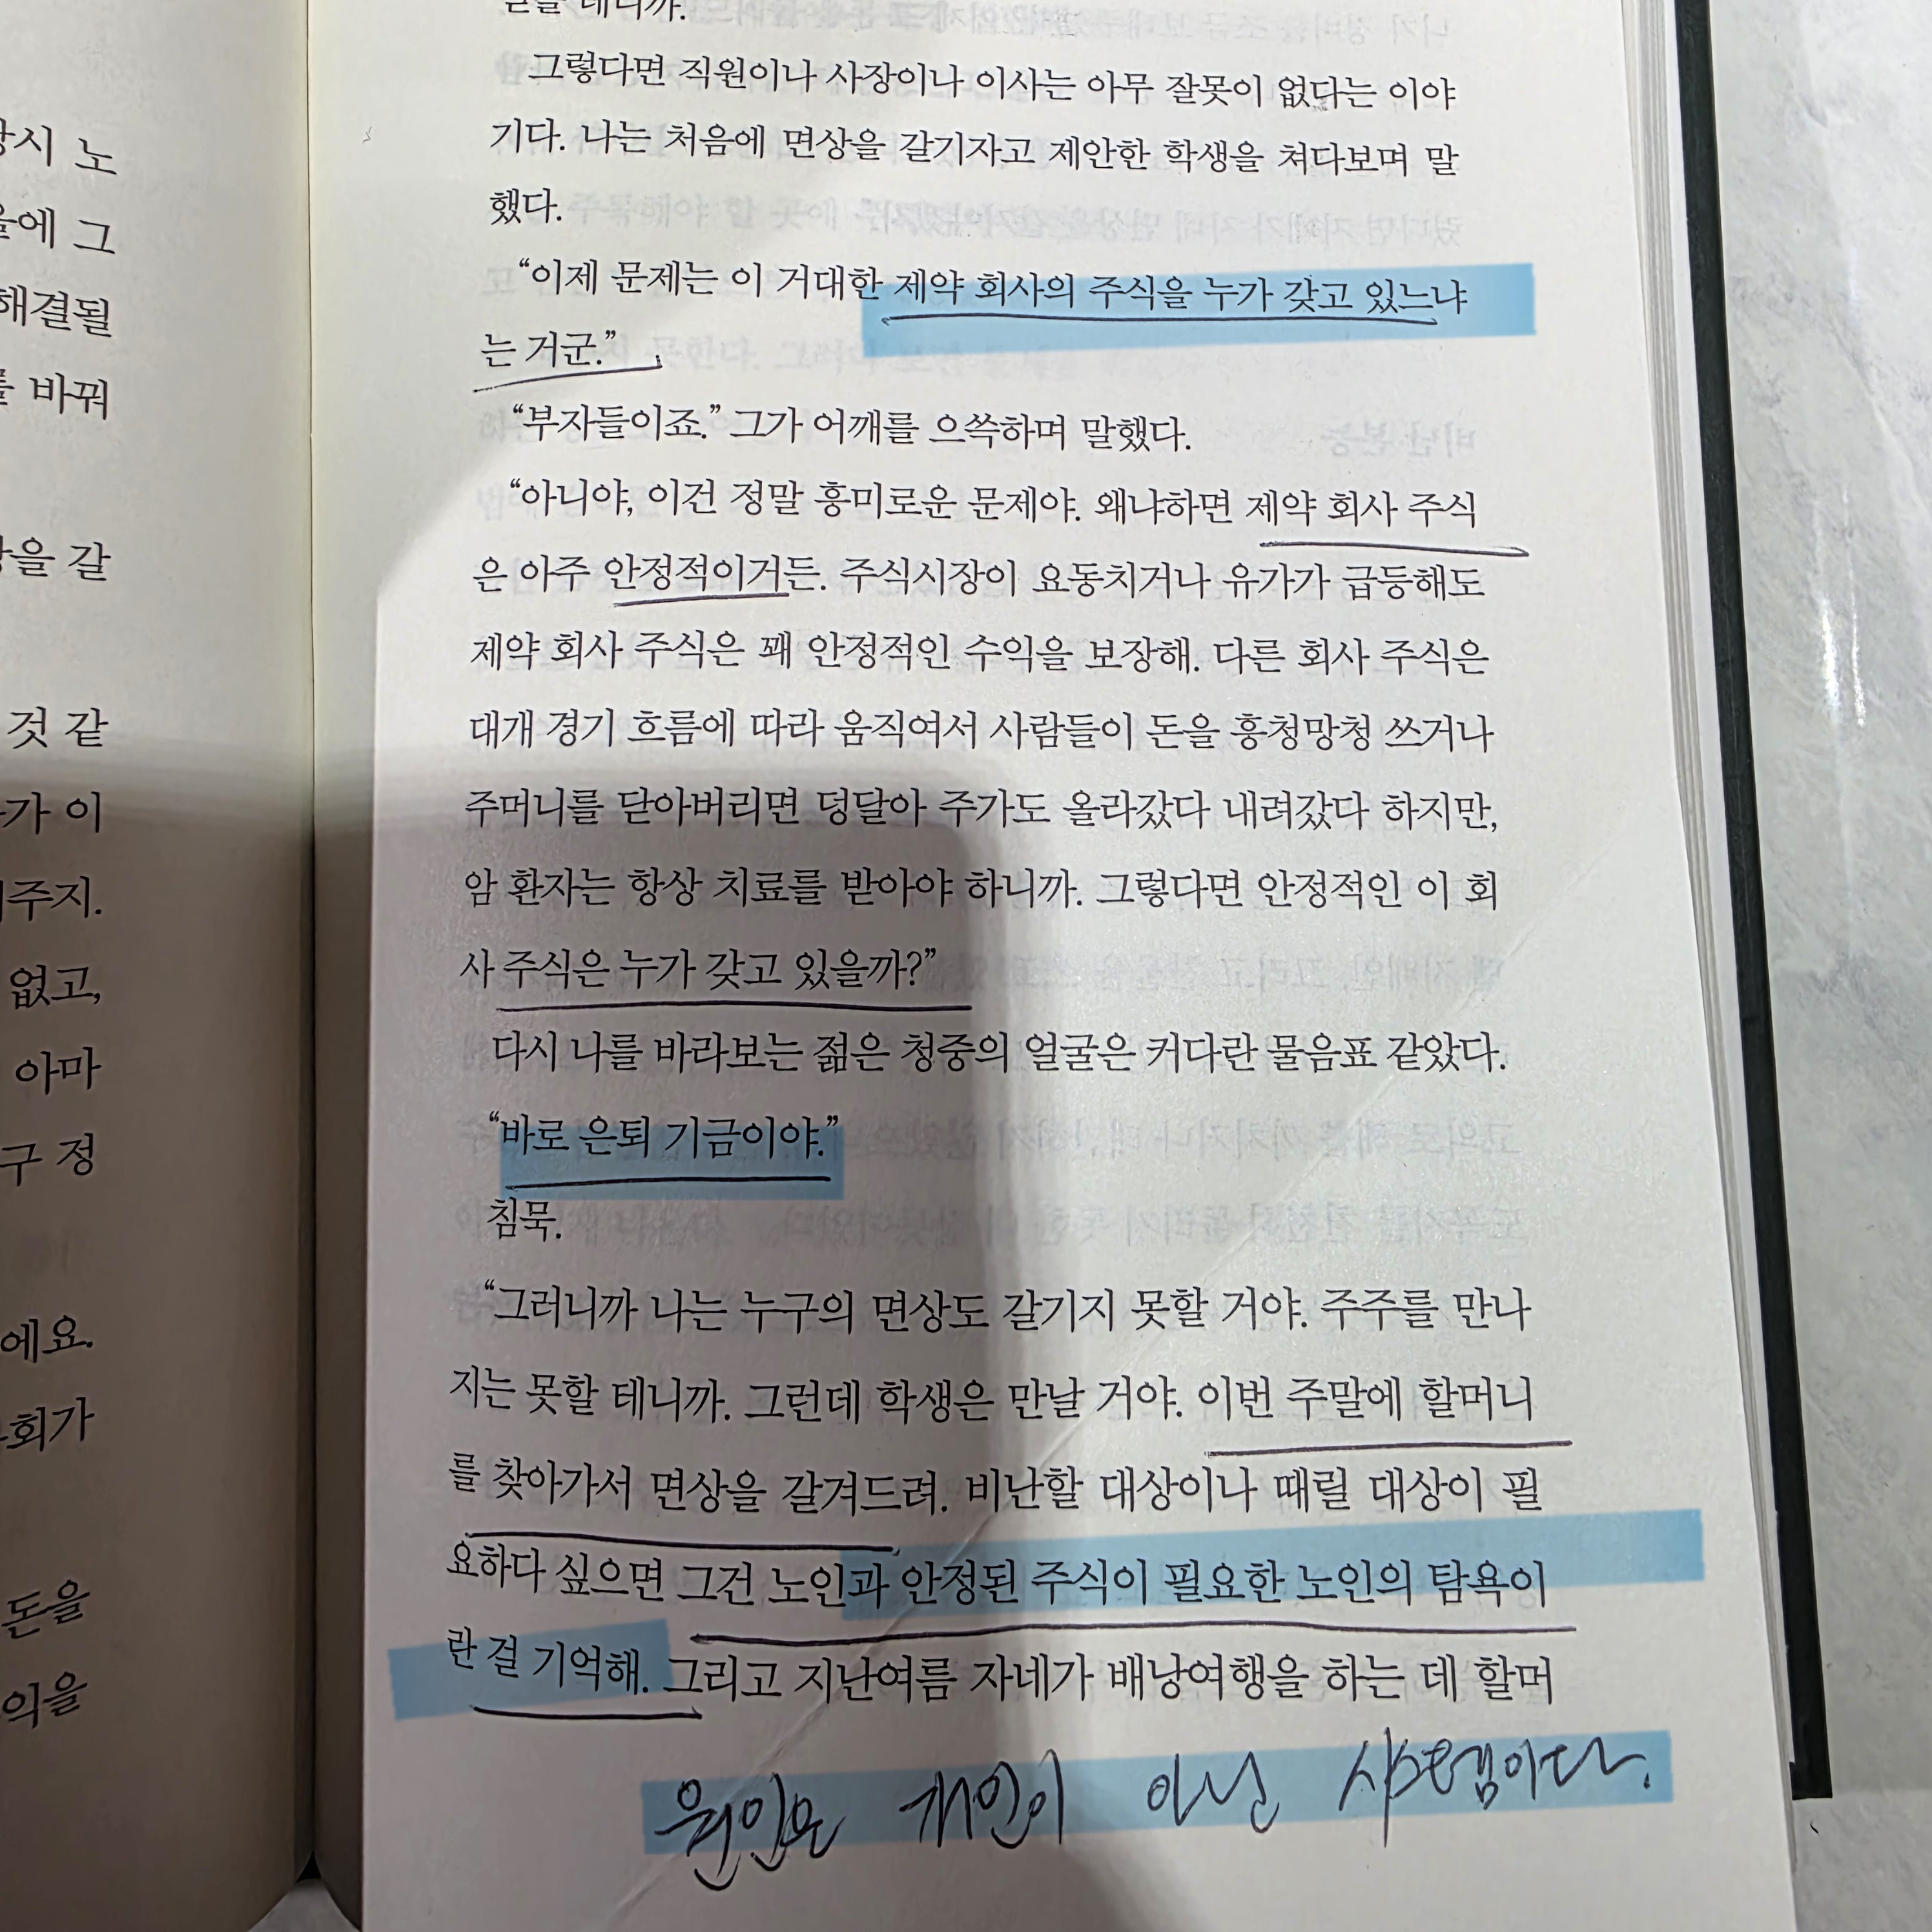 상시 노
을에 그
해결될
를 바꿔
상을 갈
것 같
가 이
주지.
없고,
아마
구 정
에요.
회가
돈을
익을
말할 테니까.
그렇다면 직원이나 사장이나 이사는 아무 잘못이 없다는 이야
기다. 나는 처음에 면상을 갈기자고 제안한 학생을 쳐다보며 말
했다.
“이제 문제는 이 거대한 제약 회사의 주식을 누가 갖고 있느냐
는 거군.”
“부자들이죠.” 그가 어깨를 으쓱하며 말했다.
“아니야, 이건 정말 흥미로운 문제야. 왜냐하면 제약 회사 주식
은 아주 안정적이거든. 주식시장이 요동치거나 유가가 급등해도
제약 회사 주식은 꽤 안정적인 수익을 보장해. 다른 회사 주식은
대개 경기 흐름에 따라 움직여서 사람들이 돈을 흥청망청 쓰거나
주머니를 닫아버리면 덩달아 주가도 올라갔다 내려갔다 하지만,
암 환자는 항상 치료를 받아야 하니까. 그렇다면 안정적인 이 회
사 주식은 누가 갖고 있을까?”
다시 나를 바라보는 젊은 청중의 얼굴은 커다란 물음표 같았다.
“바로 은퇴 기금이야.”
침묵.
“그러니까 나는 누구의 면상도 갈기지 못할 거야. 주주를 만나
지는 못할 테니까. 그런데 학생은 만날 거야. 이번 주말에 할머니
를 찾아가서 면상을 갈겨드려. 비난할 대상이나 때릴 대상이 필
요하다 싶으면 그건 노인과 안정된 주식이 필요한 노인의 탐욕이
란 걸 기억해. 그리고 지난여름 자네가 배낭여행을 하는 데 할머
원인은 개인이 아닌 시스템이다.